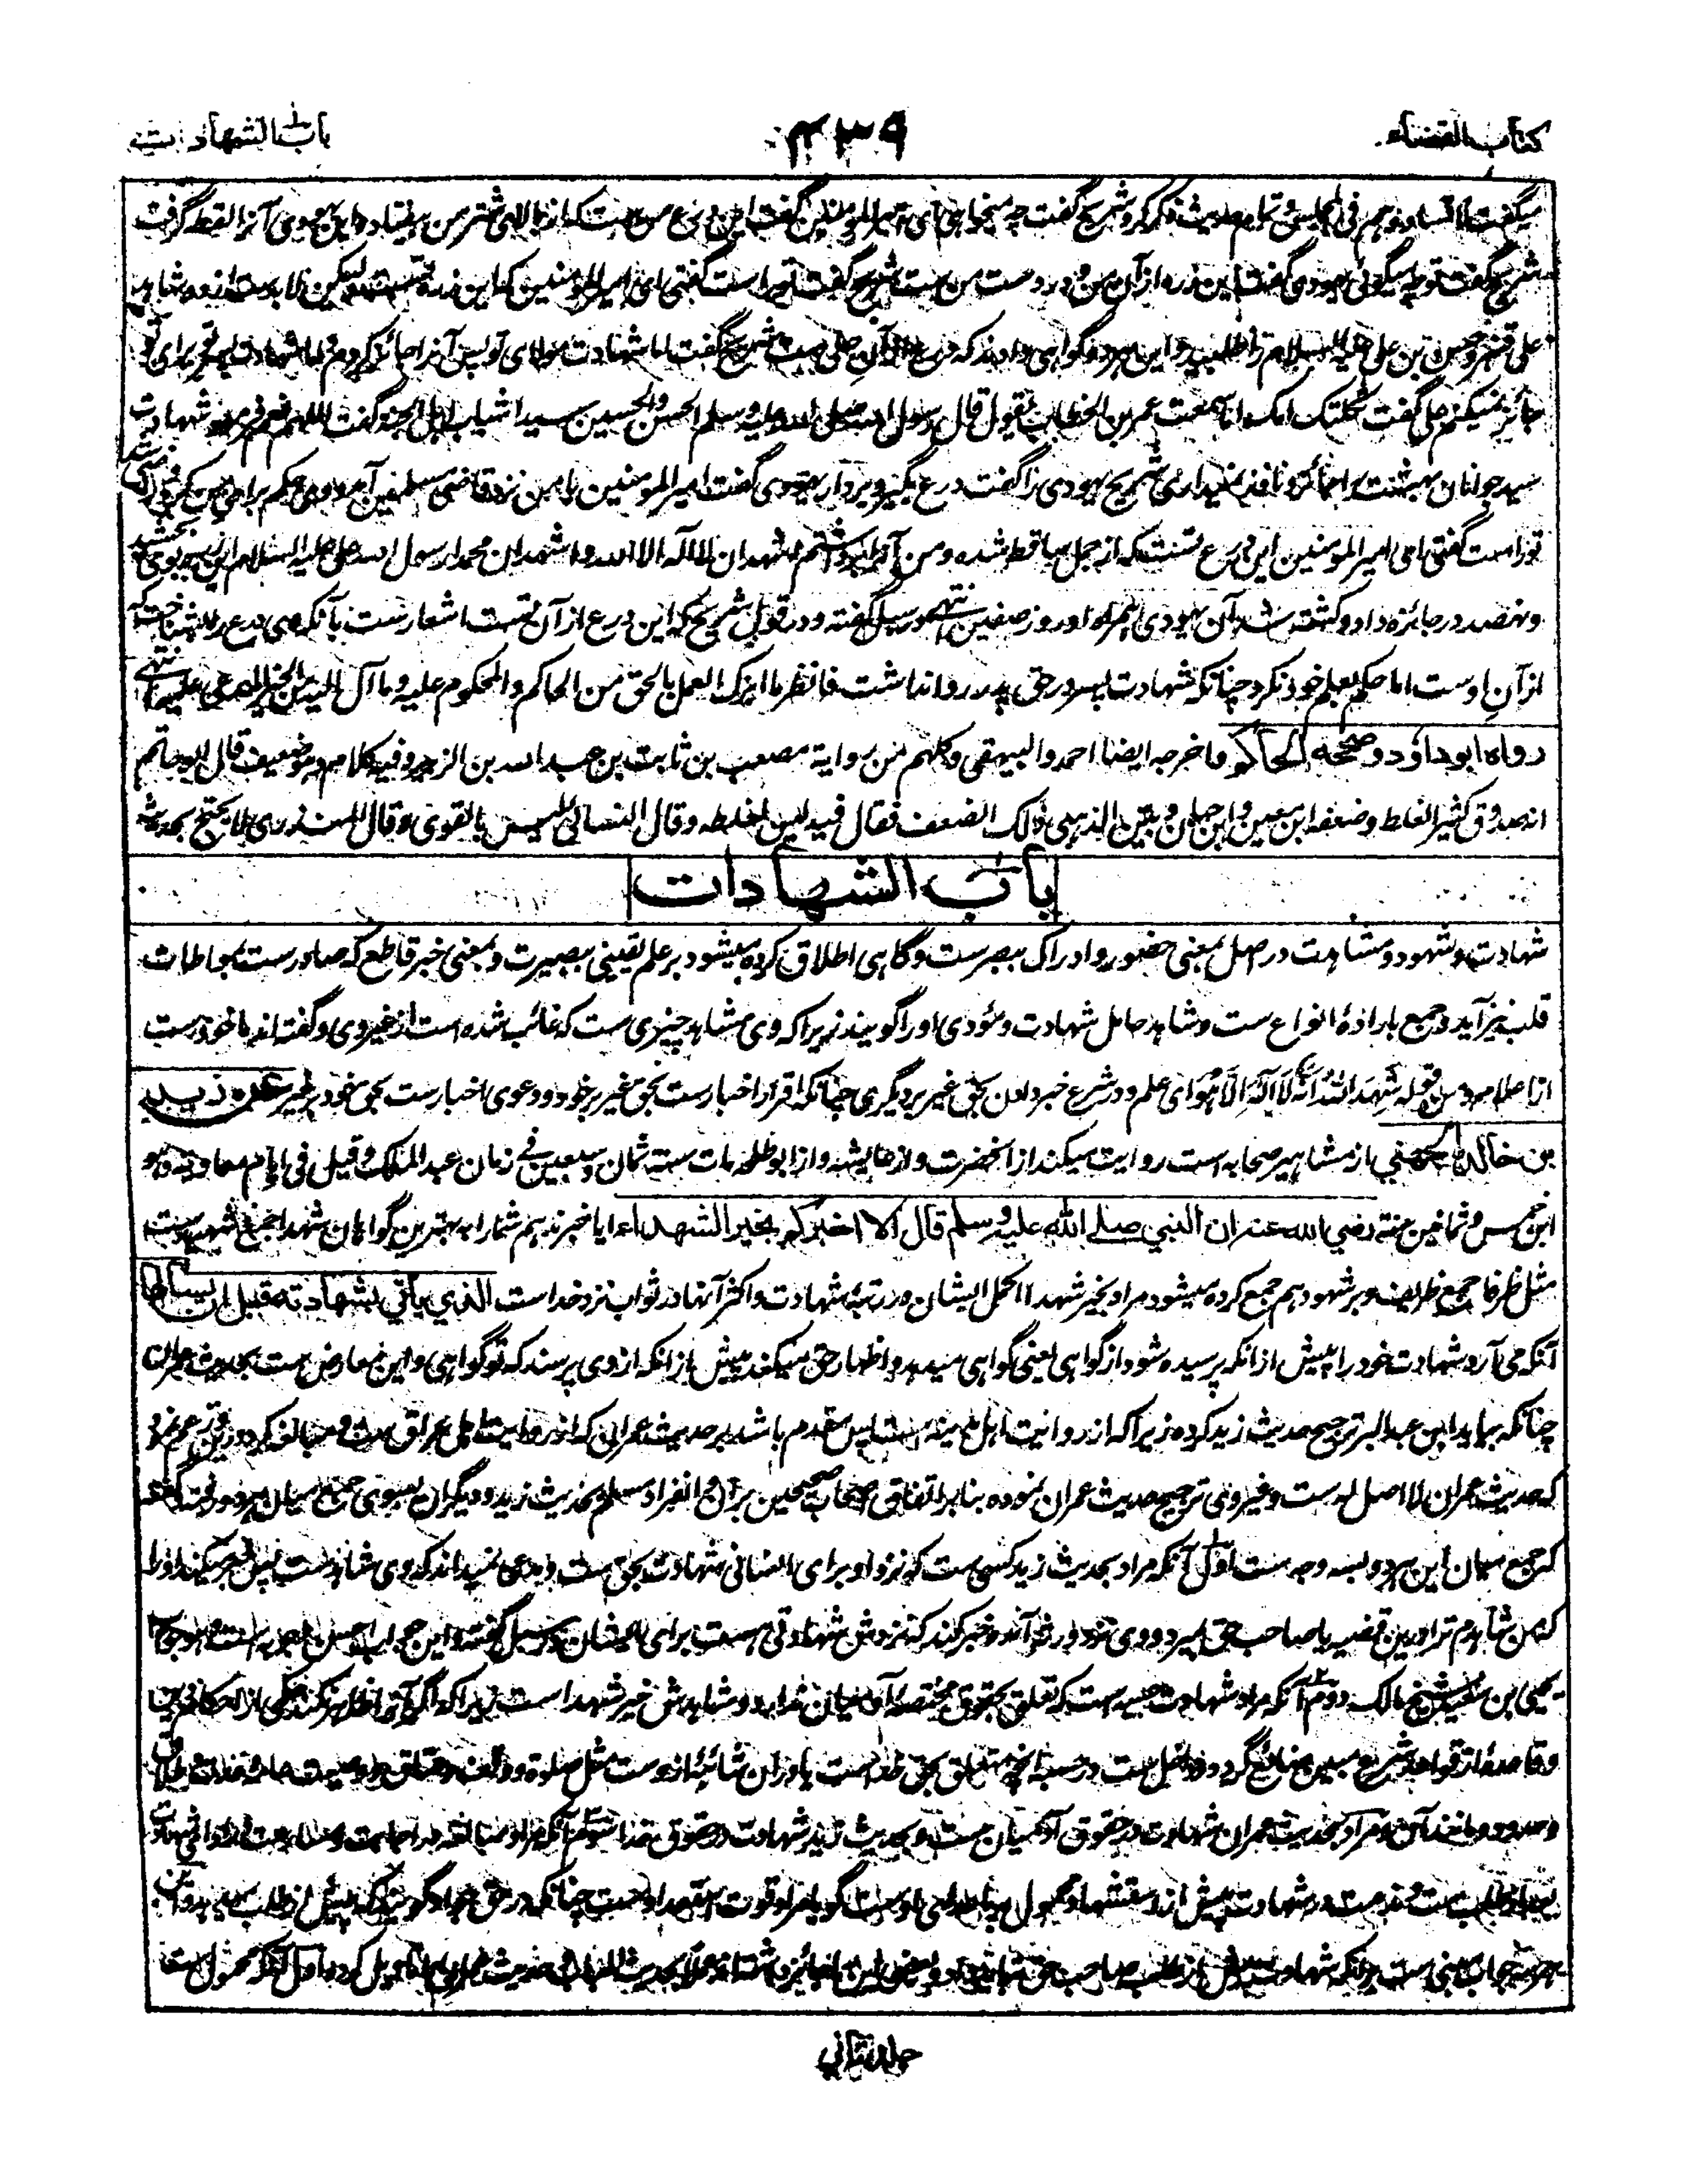 کتاب القضاء
۴۳۹
باب الشهادات
میگفت لا تساووهم فی المجلس و تمام حدیث ذکر کرد و شریح گفت چه میخواهی ای امیرالمؤمنین گفت این درع من ست که از بالای شتر من بیفتاد و این یهودی آنرا لقط گرفت
شریح گفت تو چه میگوئی یهودی گفت این زره از آن من و در دست من ست شریح گفت تو راست گفتی ای امیرالمؤمنین که این زره تست لیکن لابد ست از دو شاهد
علی قنبر و حسن بن علی علیه السلام را طلبید و این هر دو گواهی دادند که درع از آن علی ست شریح گفت اما شهادت مولای تو پس آنرا جائز کردم و اما شهادت پسر تو برای تو
جائز نمیکنم علی گفت ثکلتک امک اما سمعت عمر بن الخطاب یقول قال رسول الله صلی الله علیه وسلم الحسن والحسین سیدا شباب اهل الجنة گفت اللهم نعم فرمود شهادت
سید جوانان بهشت را جائز و نافذ نمیداری شریح یهودی را گفت درع بگیر و بردار یهودی گفت امیرالمؤمنین با من نزد قاضی مسلمین آمد و وی حکم برای من کرد و راضی شد
تو راست گفتی ای امیرالمؤمنین این درع تست که از جمل ساقط شده و من آنرا برداشتم اشهد ان لا اله الا الله واشهد ان محمدا رسول الله علی علیه السلام این زره بوی بخشید
و نهصد در جائزه داد و کشته شد آن یهودی همراه او روز صفین انتهی در سبل گفته و در قول شریح که این درع از آن تست اشعار ست بآنکه وی درع را شناخت که
از آن اوست اما حکم بعلم خود نکرد چنانکه شهادت پسر در حق پدر روا نداشت فانظر ما ابرک العمل بالحق من الحاکم والمحکوم علیه وما آل الیه من الخیر للمدعی علیه انتهی
رواه ابو داؤد وصححه الحاکم و اخرجه ایضا احمد والبیهقی وکلهم من روایة مصعب بن ثابت بن عبد الله بن الزبیر وفیه کلام وهو ضعیف قال ابو حاتم
انه صدوق کثیر الغلط وضعفه ابن معین وابن حبان وبین الذهبی ذلک الضعف فقال فیه لین لغلطه وقال النسائی لیس بالقوی وقال المنذری لا یحتج بحدیثه
باب الشهادات
شهادت و شهود و مشاهدت در اصل بمعنی حضور و ادراک ببصر ست و گاهی اطلاق کرده میشود بر علم یقینی ببصیرت و بمعنی خبر قاطع که صادر ست بمواطات
قلب نیز آید و جمع بارادهٔ انواع ست و شاهد حامل شهادت و مؤدی او را گویند زیرا که وی مشاهد چیزی ست که غائب شده است از غیر وی و گفته اند ماخوذ ست
از اعلام من قوله شَهِدَ اللهُ اَنَّهُ لَا اِلٰهَ اِلَّا هُوَ ای علم و در شرع خبر دادن بحق غیر بر دیگری چنانکه اقرار اخبار ست بحق غیر بر خود و دعوی اخبار ست بحق خود بر غیر عن زید
بن خالد الجهنی از مشاهیر صحابه است روایت میکند از آنحضرت و از عایشه و از ابو طلحه مات سنة ثمان وسبعین فی زمان عبد الملک وقیل فی ایام معاویه وهو
ابن خمس وثمانین سنة رضی الله عنه ان النبی صلی الله علیه وسلم قال الا اخبرکم بخیر الشهداء ایا خبر ندهم شما را به بهترین گواهان شهدا جمع شهید ست
مثل ظرفا جمع ظریف و بر شهود هم جمع کرده میشود مراد بخیر شهدا اکمل ایشان در رتبهٔ شهادت و اکثر آنها در ثواب نزد خدا است الذی یاتی بشهادته قبل ان یسألها
آنکه می آرد شهادت خود را پیش از انکه پرسیده شود از گواهی یعنی گواهی میدهد و اظهار حق میکند پیش از انکه از وی پرسند که تو گواهی و این معارض ست بحدیث عمران
چنانکه بیاید ابن عبد البر ترجیح حدیث زید کرده زیرا که از روایت اهل مدینه ست پس مقدم باشد بر حدیث عمران که از روایت اهل عراق ست و مبالغه کرد و زعم نمود
که حدیث عمران لا اصل له ست و غیر وی ترجیح حدیث عمران نموده بنا بر اتفاق اصحاب صحیحین بر آن و انفراد مسلم بحدیث زید و دیگران بسوی جمع میان هر دو رفته گفته
که جمع میان این هر دو بسه وجه ست اول آنکه مراد بحدیث زید کسی ست که نزد او برای انسانی شهادت بحق ست و مدعی نمیداند که وی شاهد ست پس خبر میکند او را
که من شاهدم ترا درین قضیه یا صاحب حق میرد و وی نزد ورثه آمده خبر کند که نزدش شهادتی هست برای ایشان در سبل گفته و این جواب احسن اجوبه است و هو جواب
یحیی بن سعید شیخ مالک دوم آنکه مراد شهادت حسبه ست که تعلق بحقوق مختصهٔ آدمیان ندارد و شاهدش خیر شهدا ست زیرا که اگر آنرا ظاهر نکند حکمی از احکام دین
و قاعدهٔ از قواعد شرع مبین ضائع گردد و داخل ست در حسبه آنچه متعلق بحق خدا ست یا در آن شائبهٔ ازوست مثل صلوة و وقف و عتاق و وصیت عامه
و مانند آن و مراد بحدیث عمران شهادت در حقوق آدمیان ست و بحدیث زید شهادت در حقوق خدا سوم آنکه مراد مبالغه در اجابت و مسارعت در ادای شهادت
بعد از طلب ست
جلد ثانی